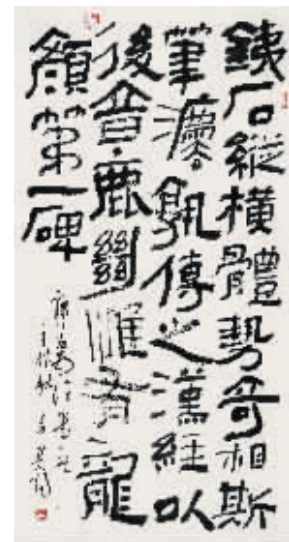 銕石縱橫體勢奇相斯
筆灋孰傳之漢經以
後音塵絕惟有龍
顏第一碑